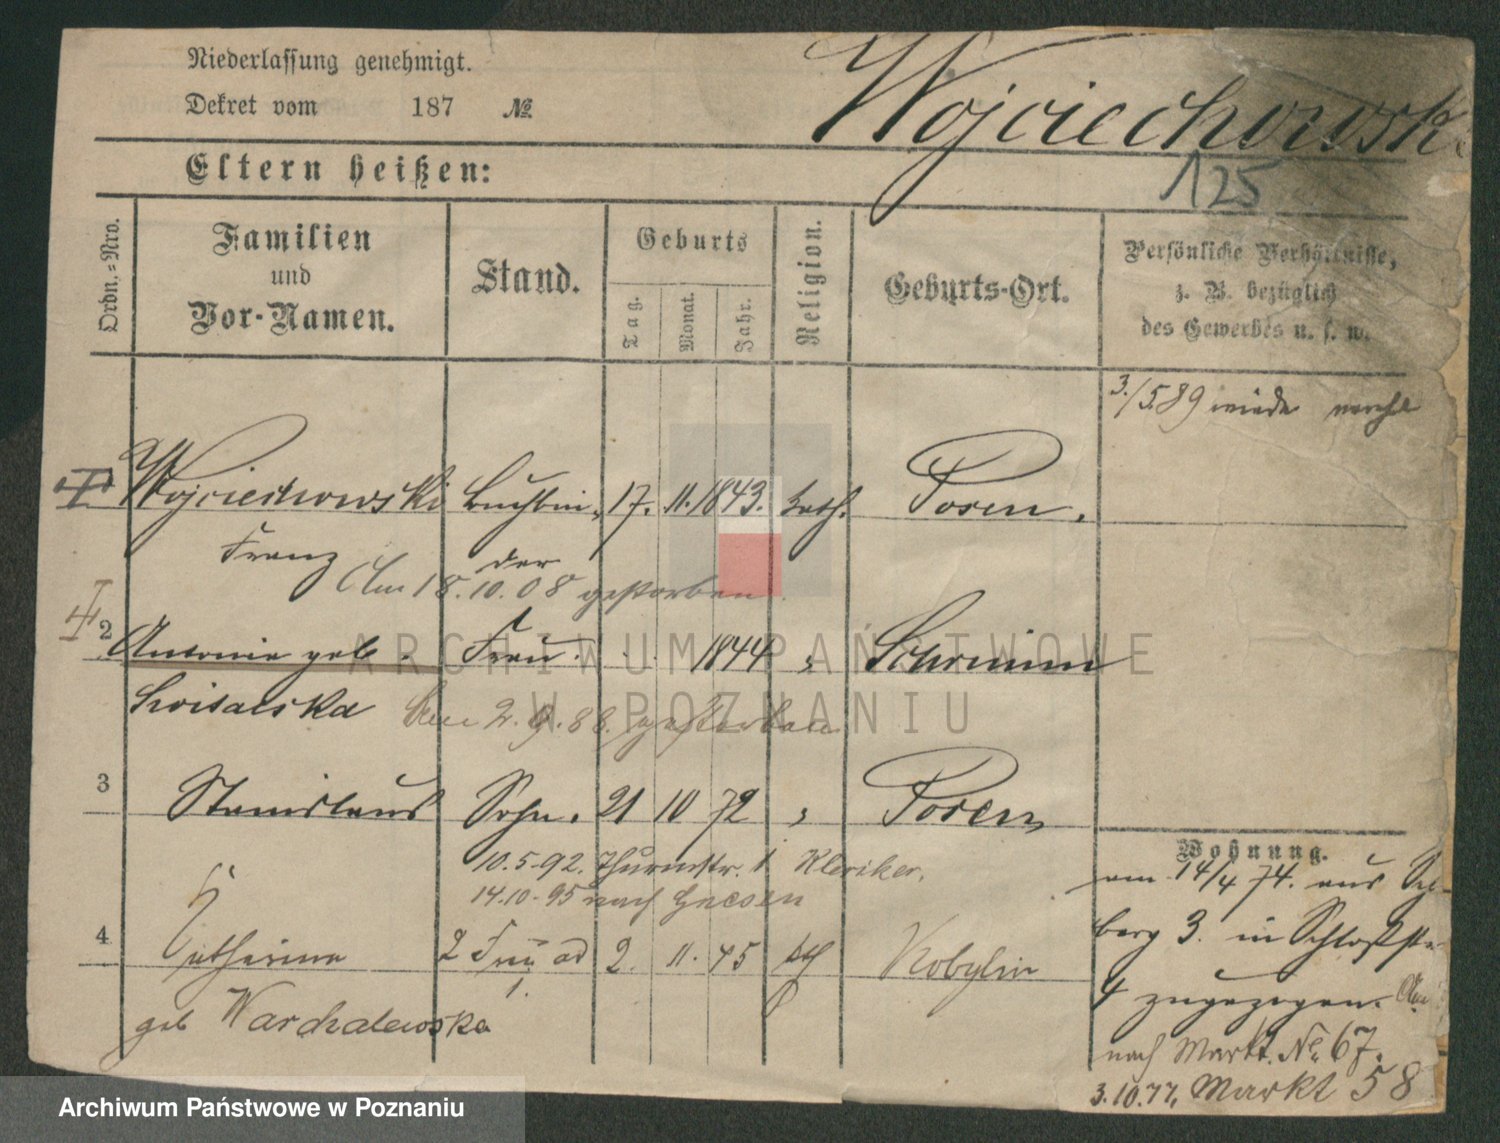 Niederlassung genehmigt.
Dekret vom 187 №
Wojciechowski
125
Eltern heißen:
Ordn.=Nro.
Familien und Vor-Namen.
Stand.
Geburts
Tag.
Monat.
Jahr.
Religion.
Geburts-Ort.
Persönliche Verhältnisse,
z. B. bezüglich
des Gewerbes u. s. w.
3./5.89 wieder verehl
Wojciechowski Buchbin, 17. 11. 1843. kath. Posen.
Franz der
Am 18.10.08 gestorben.
2 Antonie geb. Frau. 1844 " Schrimm
Am 2.9.88. gestorben
3 Stanislaus Sohn. 21 10 72 " Posen
10.5.92. Thurmstr. 1 Kleriker.
14.10.95 nach Gnesen
4 Catharina 2 Frau ad 2. 11. 45 kth Kobylin
1.
geb Warchalewska
Wohnung.
am 14/4 74. aus
berg 3. in Schloßstr.
4 zugezogen.
nach Markt. No. 67.
3.10.77, Markt 58
ARCHIWUM PAŃSTWOWE
W POZNANIU
Archiwum Państwowe w Poznaniu